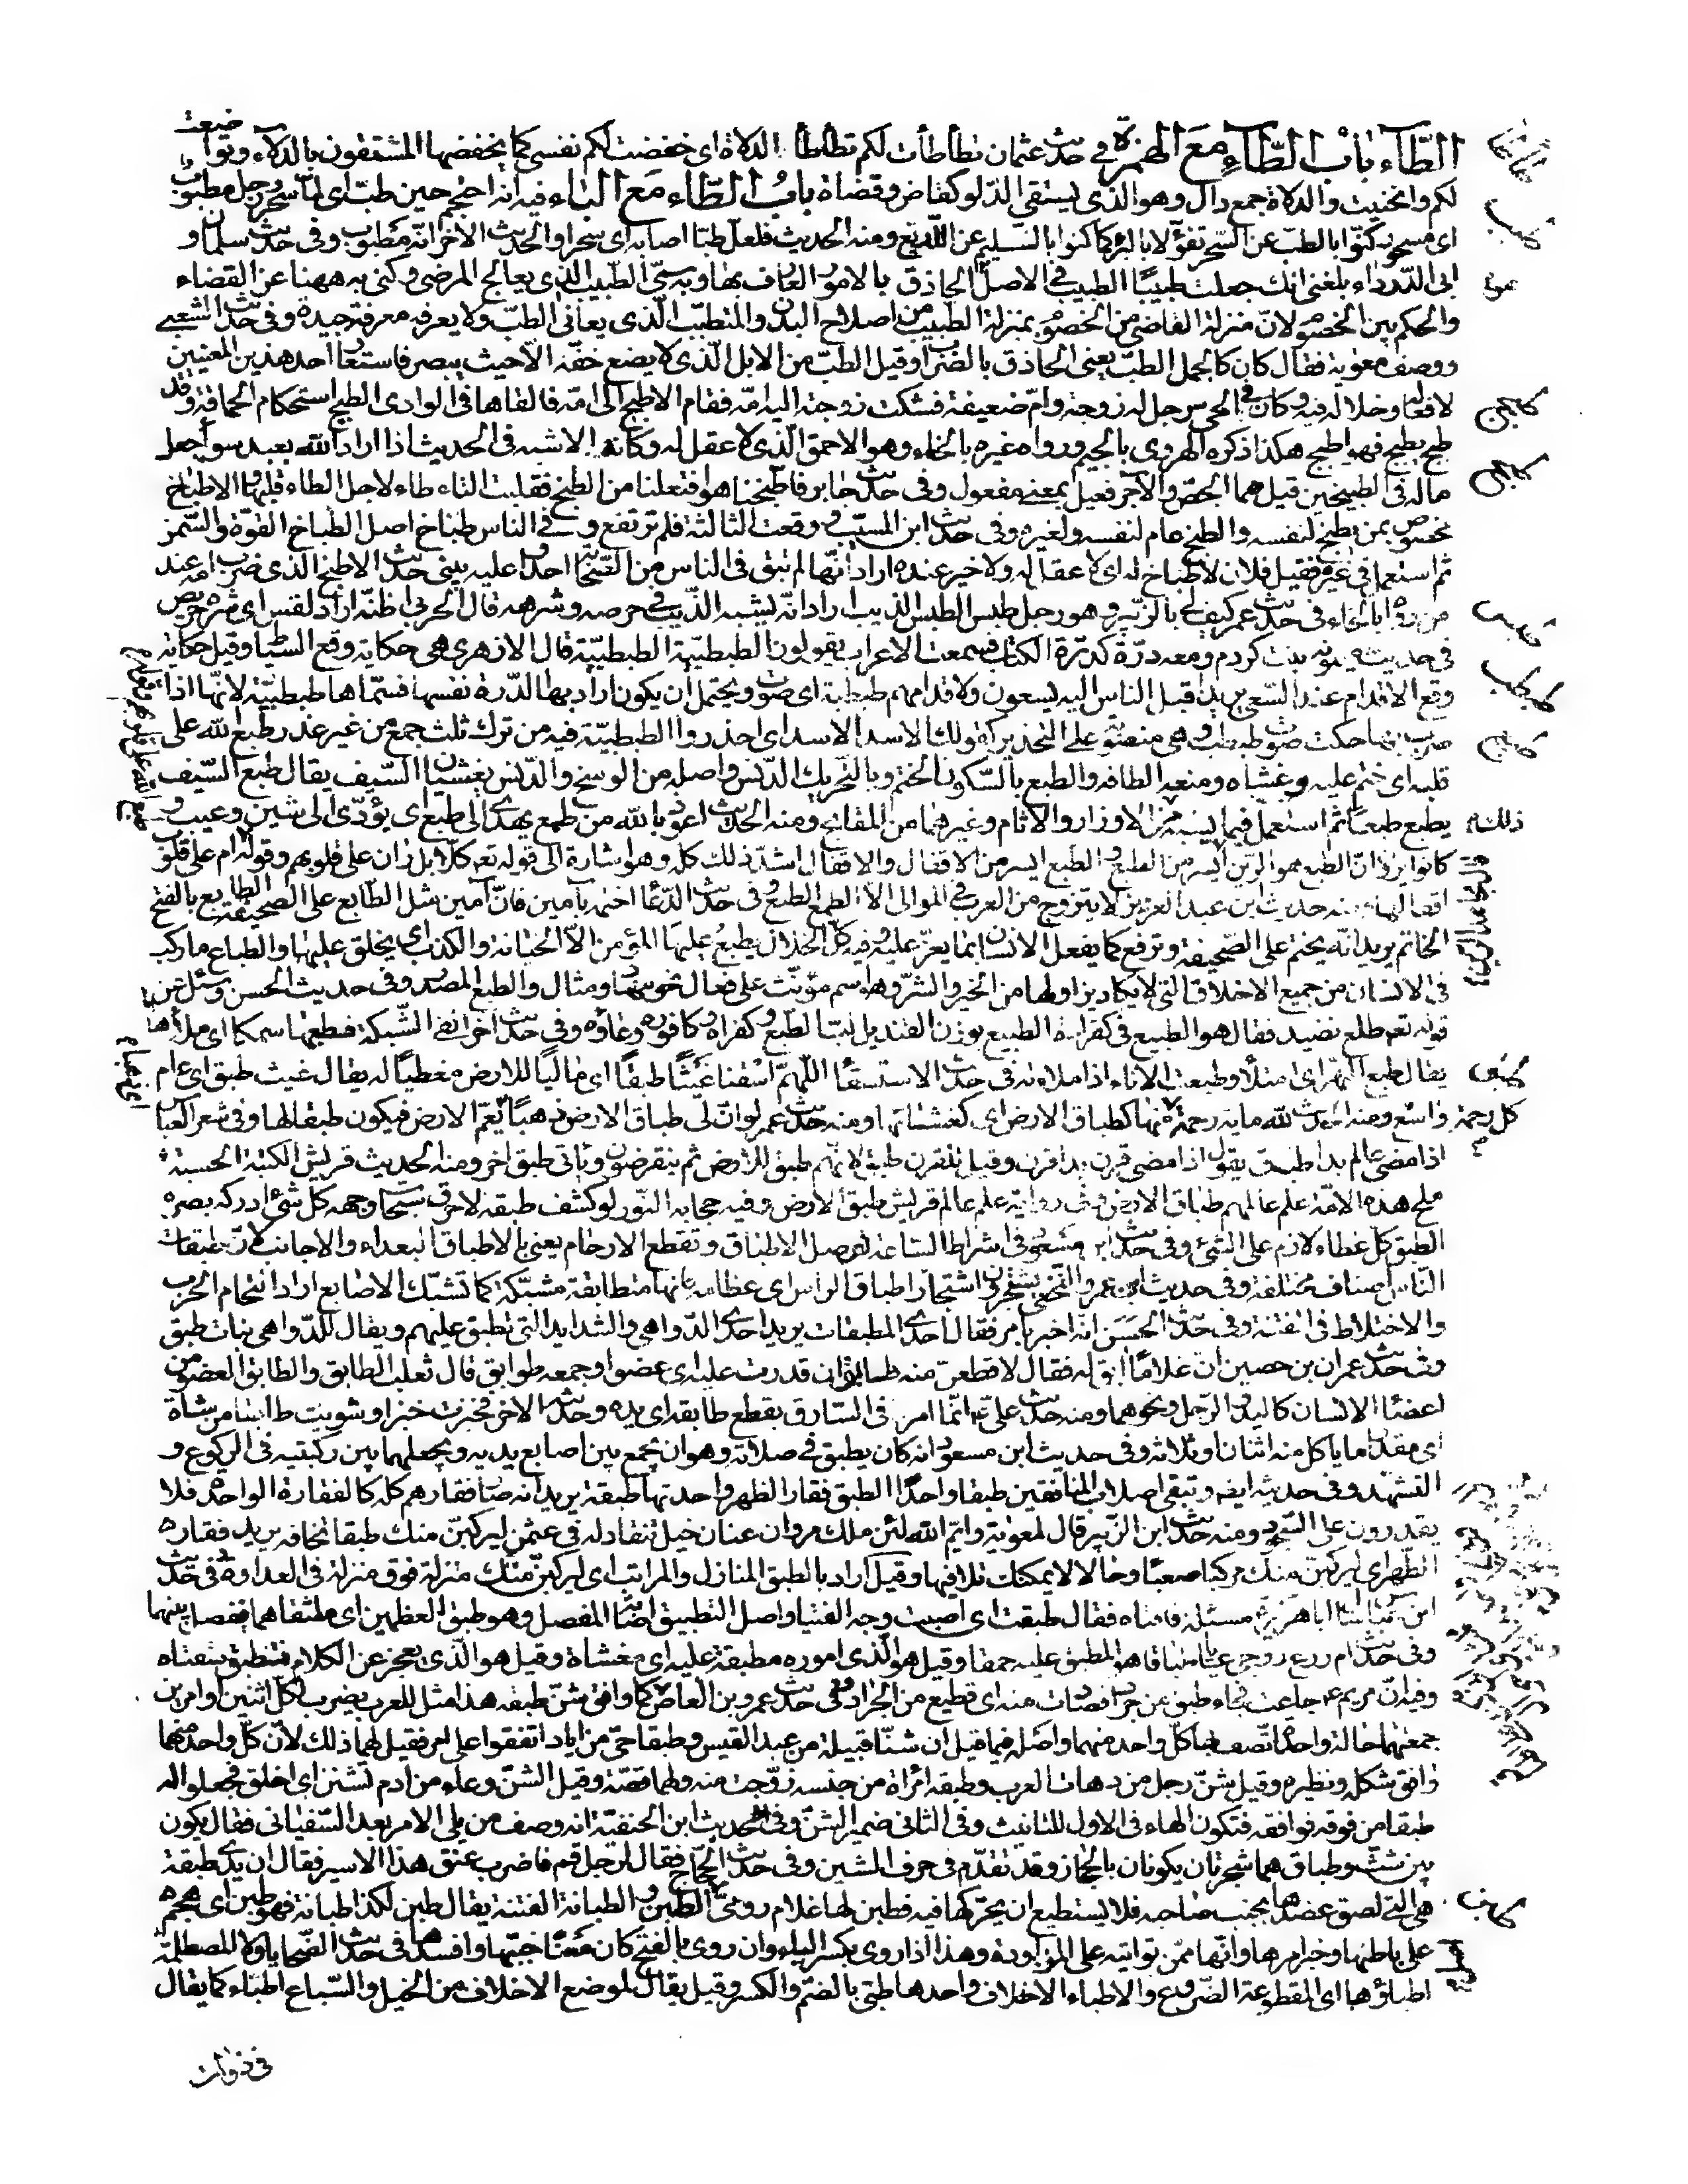 الطّاء بابُ الطّاءِ مَعَ الهمزة في حديث عثمان تطأطأت لكم تطأطأ الدلاة اى خفضت لكم نفسى كما يخفضها المستقون بالدلاء وتواضعت
لكم وانحنيت والدلاة جمع دال وهو الذى يستقى الدّلو كقاض وقضاة بابُ الطّاء مَع الباء فيه انه احتجم حين طبّ اى لما سحر ورجل مطبوب
اى مسحور كنّوا بالطبّ عن السّحر تفؤّلا بالبرء كما كنوا بالسّليم عن اللّديغ ومنه الحديث فلعل طبّا اصابه اى سحرا والحديث الآخر انه مطبوب وفى حديث سلمان و
ابى الدّرداء بلغنى انك جعلت طبيبًا الطبيب فى الاصل الحاذق بالامور العارف بها وبه سمّى الطبيب الذى يعالج المرضى وكنى به ههنا عن القضاء
والحكم بين الخصوم لانّ منزلة القاضى من الخصوم بمنزلة الطبيب من اصلاح البدن والمتطبّب الّذى يعانى الطبّ ولا يعرفه معرفة جيدة وفى حديث الشعبى
ووصف معوية فقال كان كالجمل الطبّ يعنى الحاذق بالضراب وقيل الطبّ من الابل الّذى لا يضع خفّه الّا حيث يبصر فاستعار احد هذين المعنيين
لافعاله وخلاله فيه وكان فى الحى رجل له زوجة وامّ ضعيفة فشكت زوجته اليه امّه فقام الاطبج الى امّه فالقاها فى الوادى الطبج استحكام الحماقة وقد
طبج يطبج فهو اطبج هكذا ذكره الهروى بالجيم ورواه غيره بالخاء وهو الاحمق الّذى لا عقل له وكانه الاشبه فى الحديث اذا اراد الله بعبد سوأ جعل
ماله فى الطبيخين قيل هما الجصّ والآجر فعيل بمعنى مفعول وفى حديث جابر فاطبخنا هو افتعلنا من الطبخ فقلبت التاء طاء لاجل الطاء قبلها والاطباخ
مخصوص بمن يطبخ لنفسه والطبخ عام لنفسه ولغيره وفى حديث ابن المسيّب ووقعت الثالثة فلم ترتفع وفى الناس طباخ اصل الطباخ القوّة والسّمن
ثم استعمل فى غيره فقيل فلان لا طباخ له اى لا عقل له ولا خير عنده اراد انّها لم تبق فى الناس من الصّحابة احدا وعليه يبنى حديث الاطبخ الذى ضرب امه عند
من رواه بالخاء فى حديث عمر كيف لى بالزّبير وهو رجل طبس الطبس الذيب اراد انه يشبه الذّيب فى حرصه وشرهه قال الحربى اظنّه اراد لقس اى شره حريص
فى حديث ميمونه بنت كردم ومعه درّة كدرّة الكتّاب فسمعت الاعراب يقولون الطبطبيّة الطبطبيّة قال الازهرى هى حكاية وقع السّياط وقيل حكاية
وقع الاقدام عند السّعى يريد اقبل الناس اليه يسعون ولاقدامهم طبطبة اى صوت ويحتمل ان يكون اراد بها الدّرة نفسها فسمّاها طبطبيّة لانّها اذا
ضرب بها حكت صوت طب طب وهى منصوبة على التحذير كقولك الاسد الاسد اى احذروا الطبطبيّة فيه من ترك ثلث جمع من غير عذر طبع الله على
قلبه اى ختم عليه وغشاه ومنعه الطافه والطبع بالسّكون الختم وبالتّحريك الدّنس واصله من الوسخ والدّنس يغشيان السّيف يقال طبع السّيف
يطبع طبعا ثم استعمل فيما يشبه ذلك من الاوزار والآثام وغيرهما من المقابح ومنه الحديث اعوذ بالله من طمع يهدى الى طبع اى يؤدّى الى شين وعيب و
كانوا يرون انّ الطبع هو الرّين الرين ايسر من الطبع والطبع ايسر من الاقفال والاقفال اشدّ ذلك كله وهو اشارة الى قوله تعم كلّا بل ران على قلوبهم وقوله ام على قلوب
اقفالها ومنه حديث ابن عبد العزيز لا يتزوج من العرب فى الموالى الا الطمع الطبع وفى حديث الدّعاء اختمه بآمين فانّ آمين مثل الطابع على الصّحيفة الطابع بالفتح
الخاتم يريد انّه يختم على الصّحيفة وترفع كما يفعل الانسان بما يعزّ عليه وفيه كلّ الخلال يطبع عليها المؤمن الّا الخيانة والكذب اى يخلق عليها والطباع ما ركّب
فى الانسان من جميع الاخلاق التى لا يكاد يزاولها من الخير والشرّ وهو اسم مؤنّث على فعال نحو مهاد ومثال والطبع المصدر وفى حديث الحسن وسئل عن
قوله تعم طلع نضيد فقال هو الطبيع فى كفراه الطبيع بوزن القنديل لبّ الطلع وكفراه وكافوره وعاؤه وفى حديث آخر القى الشّبكة فطبعها سمكا اى ملأها
يقال طبع النهر اى امتلأ وطبعت الاناء اذا ملأته فى حديث الاستسقاء اللّهمّ اسقنا غيثًا طبقًا اى مالئًا للارض مغطيًا له يقال غيث طبق اى عام
واسع ومنه الحديث لله ماية رحمة كل رحمة منها كطباق الارض اى كغشائها ومنه حديث عمر لو انّ لى طباق الارض ذهبًا اى ما يعمّ الارض فيكون طبقا لها وفى شعر العبّاس
اذا مضى عالم بدا طبق يقول اذا مضى قرن بدا قرن وقيل للقرن طبق لانّهم طبق للارض ثم ينقرضون ويأتى طبق آخر ومنه الحديث قريش الكتبة الحسبة
ملح هذه الامّة علم عالمهم طباق الارض وفى رواية علم عالم قريش طبق الارض وفيه حجابه النّور لو كشف طبقه لاحرق سبحات وجهه كل شىء ادركه بصره
الطبق كلّ غطاء لازم على الشىء وفى حديث ابن مسعود فى اشراط السّاعة توصل الاطباق وتقطع الارحام يعنى بالاطباق البعداء والاجانب لانّ طبقات
النّاس اصناف مختلفة وفى حديث ابى عمرو النّخعى يشتجرون اشتجار اطباق الراس اى عظامه فانّها متطابقة مشبّكة كما تشبّك الاصابع اراد التحام الحرب
والاختلاط فى الفتنة وفى حديث الحسن انّه اخبر بامر فقال احدى المطبقات يريد احدى الدّواهى والشدايد التى تطبق عليهم ويقال للدّواهى بنات طبق
وفى حديث عمران بن حصين انّ غلامًا ابق له فقال لاقطعنّ منه طابقا ان قدرت عليه اى عضوا وجمعه طوابق قال ثعلب الطابق والطابق العضو من
اعضاء الانسان كاليد والرّجل ونحوهما ومنه حديث علىّ ع انّما امر فى السّارق بقطع طابقه اى يده وحديثه الآخر فخبزت خبزا وشويت طابقا من شاة
اى مقدار ما يأكل منه اثنان او ثلاثة وفى حديث ابن مسعود انه كان يطبق فى صلاته وهو ان يجمع بين اصابع يديه ويجعلهما بين ركبتيه فى الركوع و
التشهّد وفى حديثه ايضه وتبقى اصلاب المنافقين طبقا واحدًا الطبق فقار الظهر واحدتها طبقة يريد انه صار فقارهم كله كالفقارة الواحدة فلا
يقدرون على السّجود ومنه حديث ابن الزّبير قال لمعوية وايم الله لئن ملك مروان عنان خيل تنقاد له فى عثمن ليركبنّ منك طبقا تخافه يريد فقاره
الظهر اى ليركبنّ منك مركبا صعبًا وحالا لا يمكنك تلافيها وقيل اراد بالطبق المنازل والمراتب اى ليركبنّ منك منزلة فوق منزلة فى العداوة وفى حديث
ابن عباس سأل ابا هريرة مسئلة فافتاه فقال طبقت اى اصبت وجه الفتيا واصل التطبيق اصابة المفصل وهو طبق العظمين اى ملتقاهما فيفصل بينهما
وفى حديث ام زرع زوجى عياياء طباقاء هو المطبق عليه حمقا وقيل هو الّذى اموره مطبقة عليه اى مغشاة وقيل هو الّذى يعجز عن الكلام فتنطبق شفتاه
وفيه انّ مريم ع جاعت فجاء طبق من جراد فصادت منه اى قطيع من الجراد وفى حديث عمرو بن العاص كما وافق شنّ طبقه هذا مثل للعرب يضرب لكلّ اثنين او امرين
جمعتهما حالة واحدة اتّصف بها كلّ واحد منهما واصله فيما قيل ان شنّا قبيلة من عبد القيس وطبقا حىّ من اياد اتفقوا على امر فقيل لهما ذلك لانّ كلّ واحد منهما
وافق شكله ونظيره وقيل شنّ رجل من دهات العرب وطبقه امرأة من جنسه زوّجت منه ولهما قصّة وقيل الشنّ وعاء من ادم تشنن اى اخلق فجعلوا له
طبقا من فوقه فوافقه فتكون الهاء فى الاول للتانيث وفى الثانى ضمير الشنّ وفى حديث ابن الحنفيّة انه وصف من يلى الامر بعد السّفيانى فقال يكون
بين شثّ وطباق هما شجرتان يكونان بالحجاز وقد تقدّم فى حرف الشين وفى حديث الحجّاج فقال لرجل قم فاضرب عنق هذا الاسير فقال ان يدى طبقة
هى التى لصق عضدها بجنب صاحبه فلا يستطيع ان يحرّكها فيه فطبن لها غلام رومىّ الطبن والطبانة الفطنة يقال طبن لكذا طبانة فهو طبن اى هجم
على باطنها وخبر امرها وانّها ممّن تواتيه على المراودة وهذا اذا روى بكسر الباء وان روى بالفتح كان معناه خيّبها وافسدها فى حديث الضّحايا ولا المصطلمة
اطباؤها اى المقطوعة الضّروع والاطباء الاخلاف واحدها طبى بالضمّ والكسر وقيل يقال لموضع الاخلاف من الخيل والسّباع اطباء كما يقال
فى ذوات